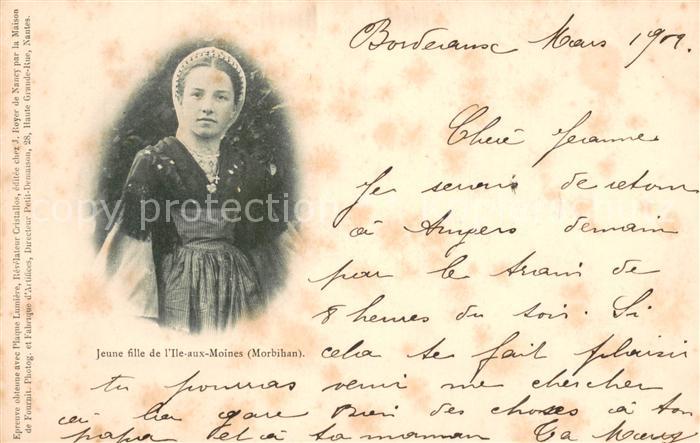 Epreuve obtenue avec Plaque Lumière, Révélateur Cristallos, éditée chez J. Royer de Nancy par la Maison
de Fournit. Photog. et Fabrique d'Artifices, Directeur Petit-Demanson, 28, Haute Grande-Rue, Nantes.
Bordeaux Mars
Chère Jeanne
Je serais de retour
à Angers demain
par le train de
8 heures du soir. Si
cela te fait plaisir
tu pourras venir me chercher
à la gare Bien des choses à ton
papa et à ta maman Ta
Jeune fille de l'Ile-aux-Moines (Morbihan).
copy protection